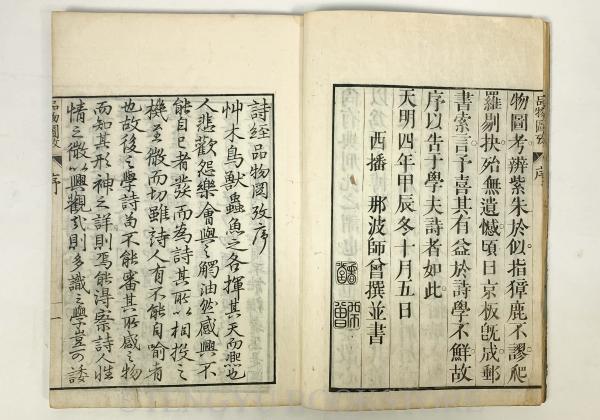 物圖考辨紫朱於似指獐鹿不謬爬
羅剔抉殆無遺憾頃日京板既成郵
書索言予喜其有益於詩學不鮮故
序以告于學夫詩者如此
天明四年甲辰冬十月五日
西播 那波師曾撰並書
師曾
品物圖攷
序
詩經品物圖攷序
艸木鳥獸蟲魚之各揮其天而熙也
人悲歡怨樂會與之觸油然感興不
能自已者發而為詩其所以相投之
機至微而切雖詩人有不能自喻有
也故後之學詩苟不能審其所感之物
而知其形神之詳則焉能得案詩人性
情之微以興觀哉則多識之學豈可諉
品物圖攷
序
一